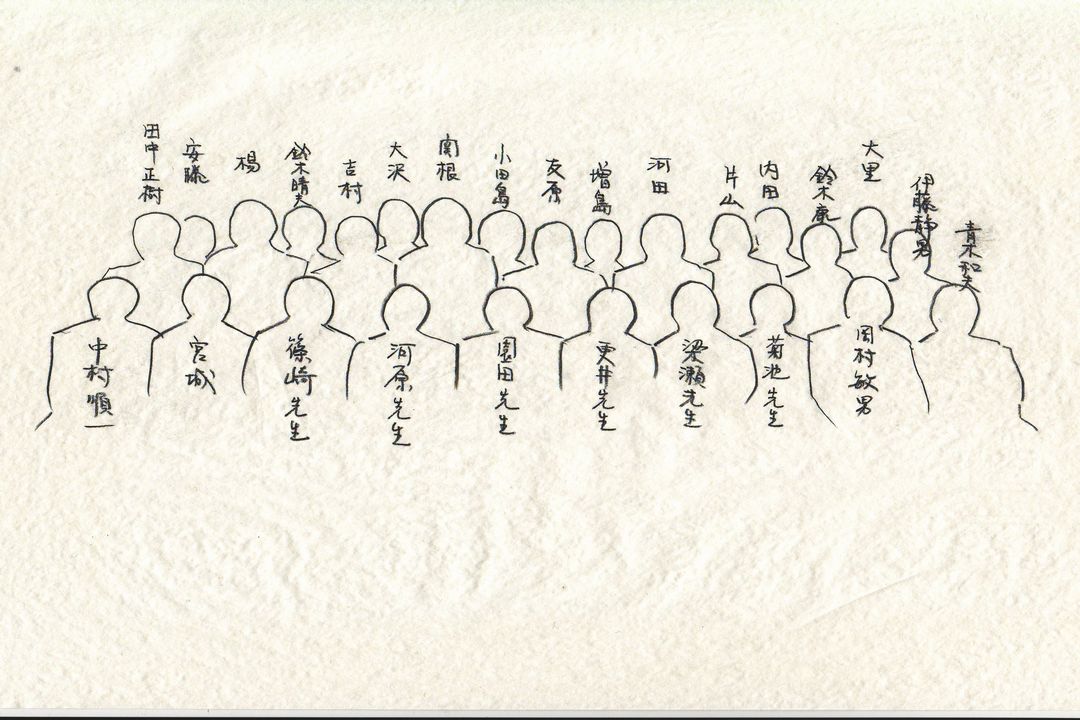 田中正樹
安藤
楊
鈴木晴夫
吉村
大沢
関根
小田島
友原
増島
河田
片山
内田
鈴木康
大里
伊藤静男
青木和夫
中村順一
宮城
篠崎先生
河原先生
園田先生
更井先生
梁瀬先生
菊池先生
岡村敏男